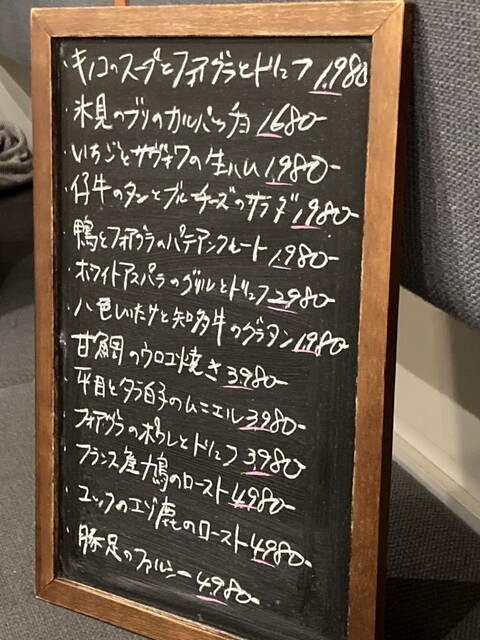 ・キノコのスープとフォアグラとトリュフ 1,980
・氷見のブリのカルパッチョ 1,680-
・いちごとサヴォワの生ハム 1,980-
・仔牛のタンとブルーチーズのサラダ 1,980-
・鴨とフォアグラのパテアンクルート 1,980-
・ホワイトアスパラのグリルとトリュフ 2,980-
・八色しいたけと知多牛のグラタン 1,980-
・甘鯛のウロコ焼き 3,980-
・平目とタラ白子のムニエル 3,980-
・フォアグラのポワレとトリュフ 3,980-
・フランス産 鳩のロースト 4,980-
・のエゾ鹿のロースト 4,980-
・豚足のファルシー 4,980-